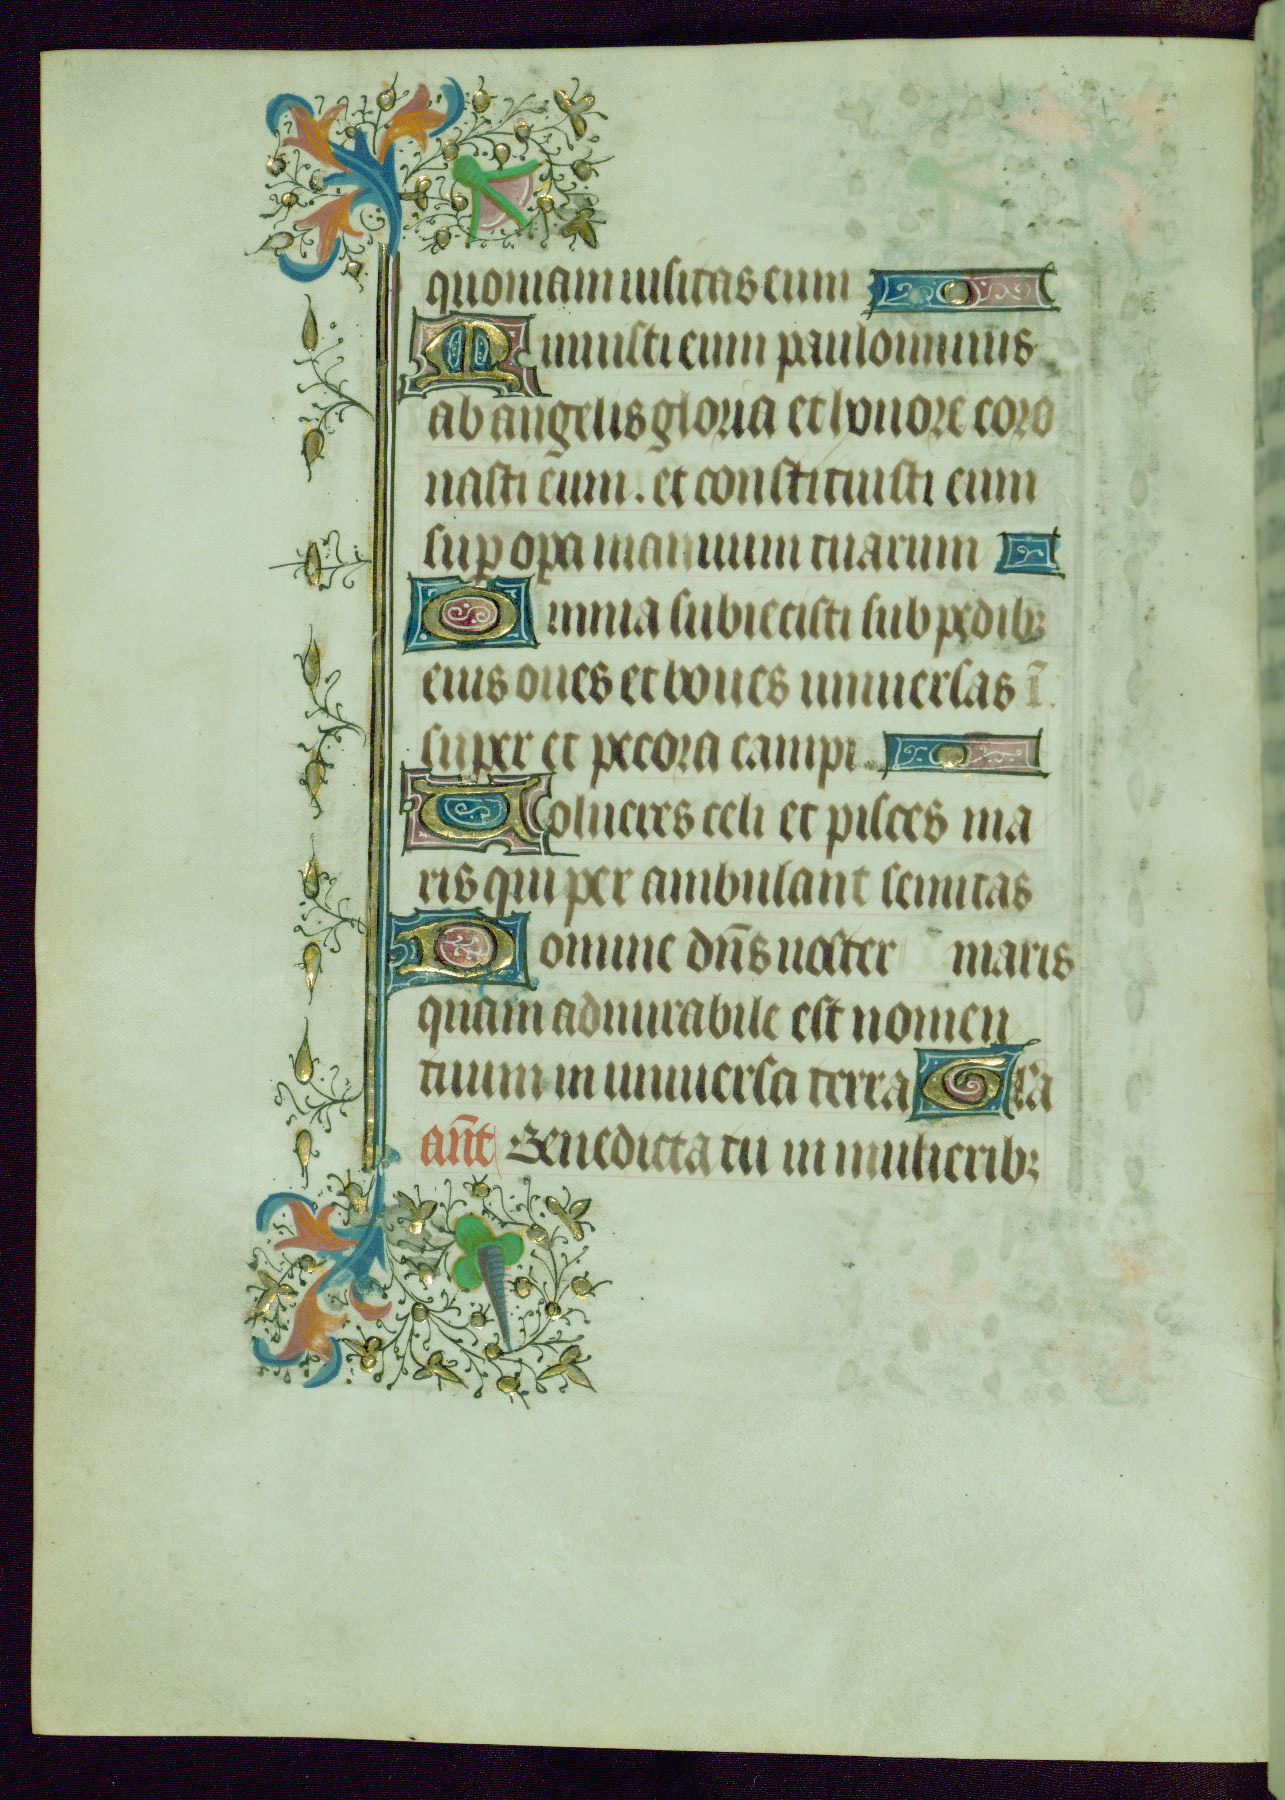 quoniam uisitas eum
Minuisti eum paulominus
ab angelis gloria et honore coro
nasti eum. et constituisti eum
sup opa manuum tuarum
Omnia subiecisti sub pedib;
eius oues et boues uniuersas ī.
super et pecora campi.
Uolucres celi et pisces ma
ris qui per ambulant semitas
Domine dn̄s noster maris
quam admirabile est nomen
tuum in uniuersa terra Gľa
an̄t Benedicta tu in mulierib;